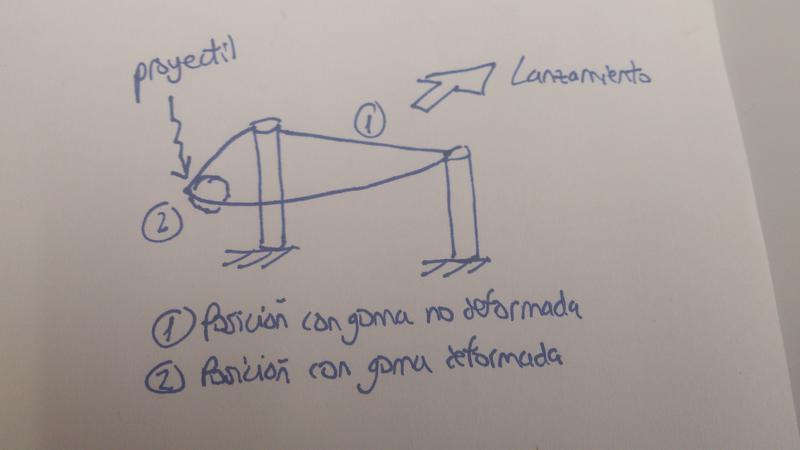 proyectil
Lanzamiento
1
2
1 Posición con goma no deformada
2 Posición con goma deformada